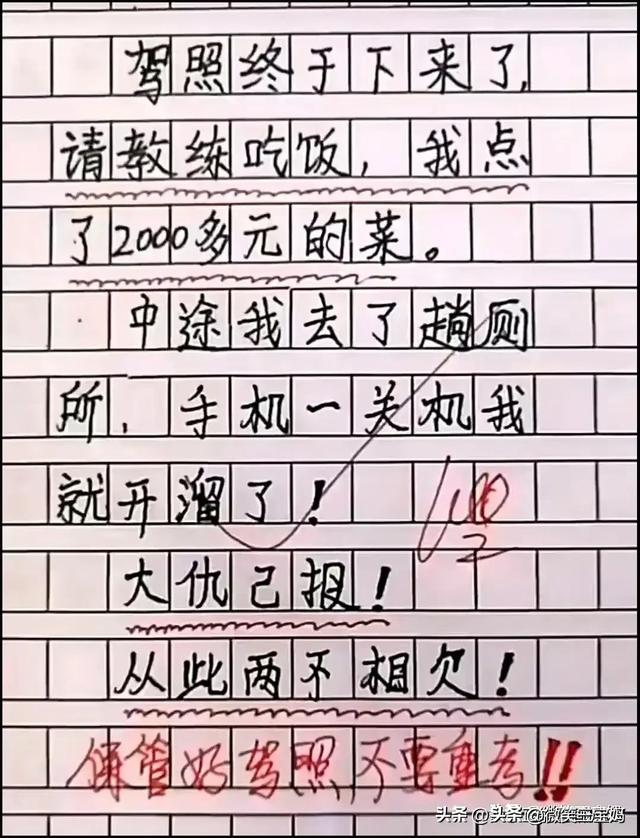 驾照终于下来了,
请教练吃饭,我点
了2000多元的菜。
中途我去了趟厕
所,手机一关机我
就开溜了!
100
大仇己报!
从此两不相欠!
保管好驾照,不要重考!!